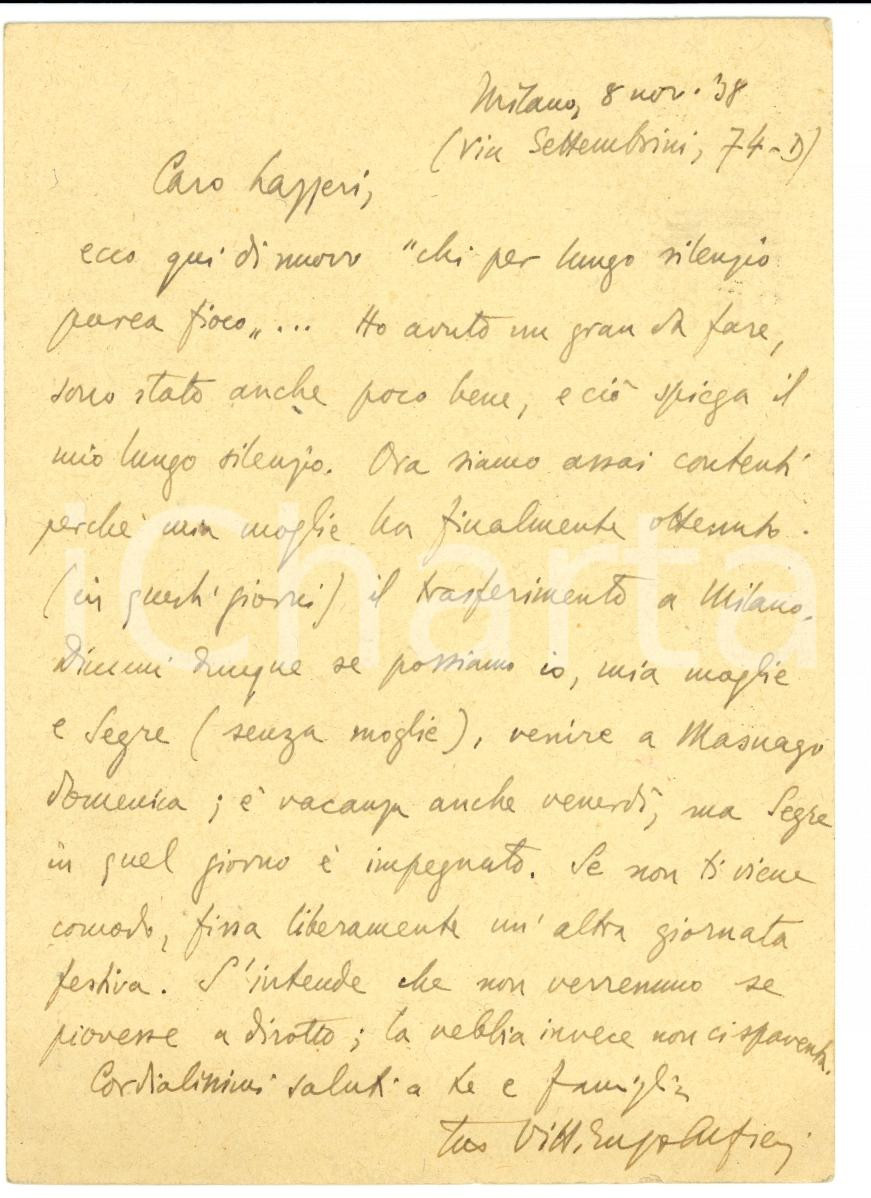 Milano, 8 nov. '38
(via Settembrini, 74-D)
Caro Lazzeri,
ecco qui di nuovo "chi per lungo silenzio
parea fioco„... Ho avuto un gran da fare,
sono stato anche poco bene, e ciò spiega il
mio lungo silenzio. Ora siamo assai contenti
perché mia moglie ha finalmente ottenuto
(in questi giorni) il trasferimento a Milano.
Dimmi dunque se possiamo io, mia moglie
e Segre (senza moglie), venire a Masnago
domenica; è vacanza anche venerdì, ma Segre
in quel giorno è impegnato. Se non ti viene
comodo, fissa liberamente un'altra giornata
festiva. S'intende che non verremmo se
piovesse a dirotto; la nebbia invece non ci spaventa.
Cordialissimi saluti a te e famiglia
tuo Vitt. Enzo Alfieri
iCharta